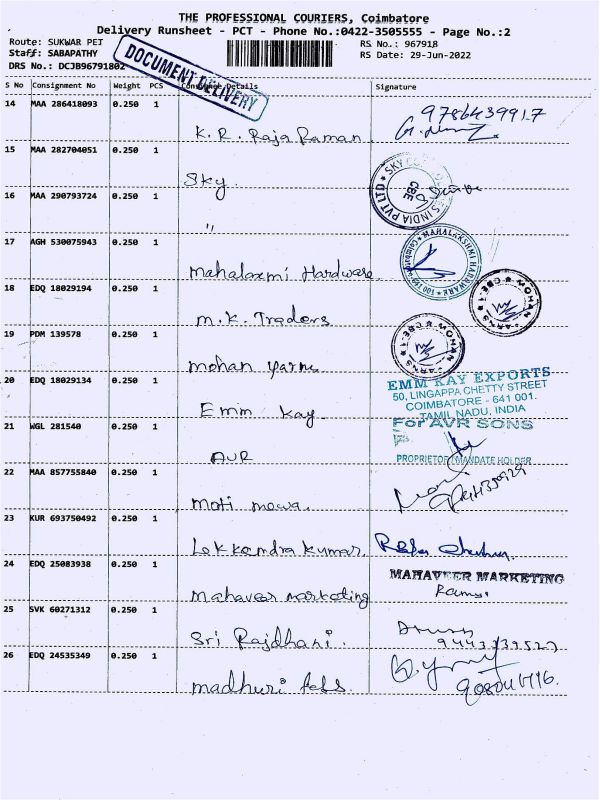 THE PROFESSIONAL COURIERS, Coimbatore
Delivery Runsheet - PCT - Phone No.:0422-3505555 - Page No.:2
Route: SUKWAR PET
RS No.: 967918
Staff: SABAPATHY
RS Date: 29-Jun-2022
DRS No.: DCJB96791802
DOCUMENT DELIVERY
S No Consignment No Weight PCS Consignee Details Signature
14 MAA 286418093 0.250 1
K. R. Raja Raman
9786439917
15 MAA 282704051 0.250 1
Sky
16 MAA 290793724 0.250 1
"
17 AGH 530075943 0.250 1
Mahalaxmi Hardware
MAHALAKSHMI HARDWARE
18 EDQ 18029194 0.250 1
M.K. Traders
19 PDM 139578 0.250 1
Mohan Yarns
20 EDQ 18029134 0.250 1
Emm Kay
EMM KAY EXPORTS
50, LINGAPPA CHETTY STREET
COIMBATORE - 641 001.
TAMIL NADU, INDIA
21 WGL 281540 0.250 1
AVR
For AVR SONS
PROPRIETOR / MANDATE HOLDER
22 MAA 857755840 0.250 1
Moti mewa.
23 KUR 693750492 0.250 1
24 EDQ 25083938 0.250 1
Mahaveer marketing
MAHAVEER MARKETING
25 SVK 60271312 0.250 1
Sri Rajdhani.
26 EDQ 24535349 0.250 1